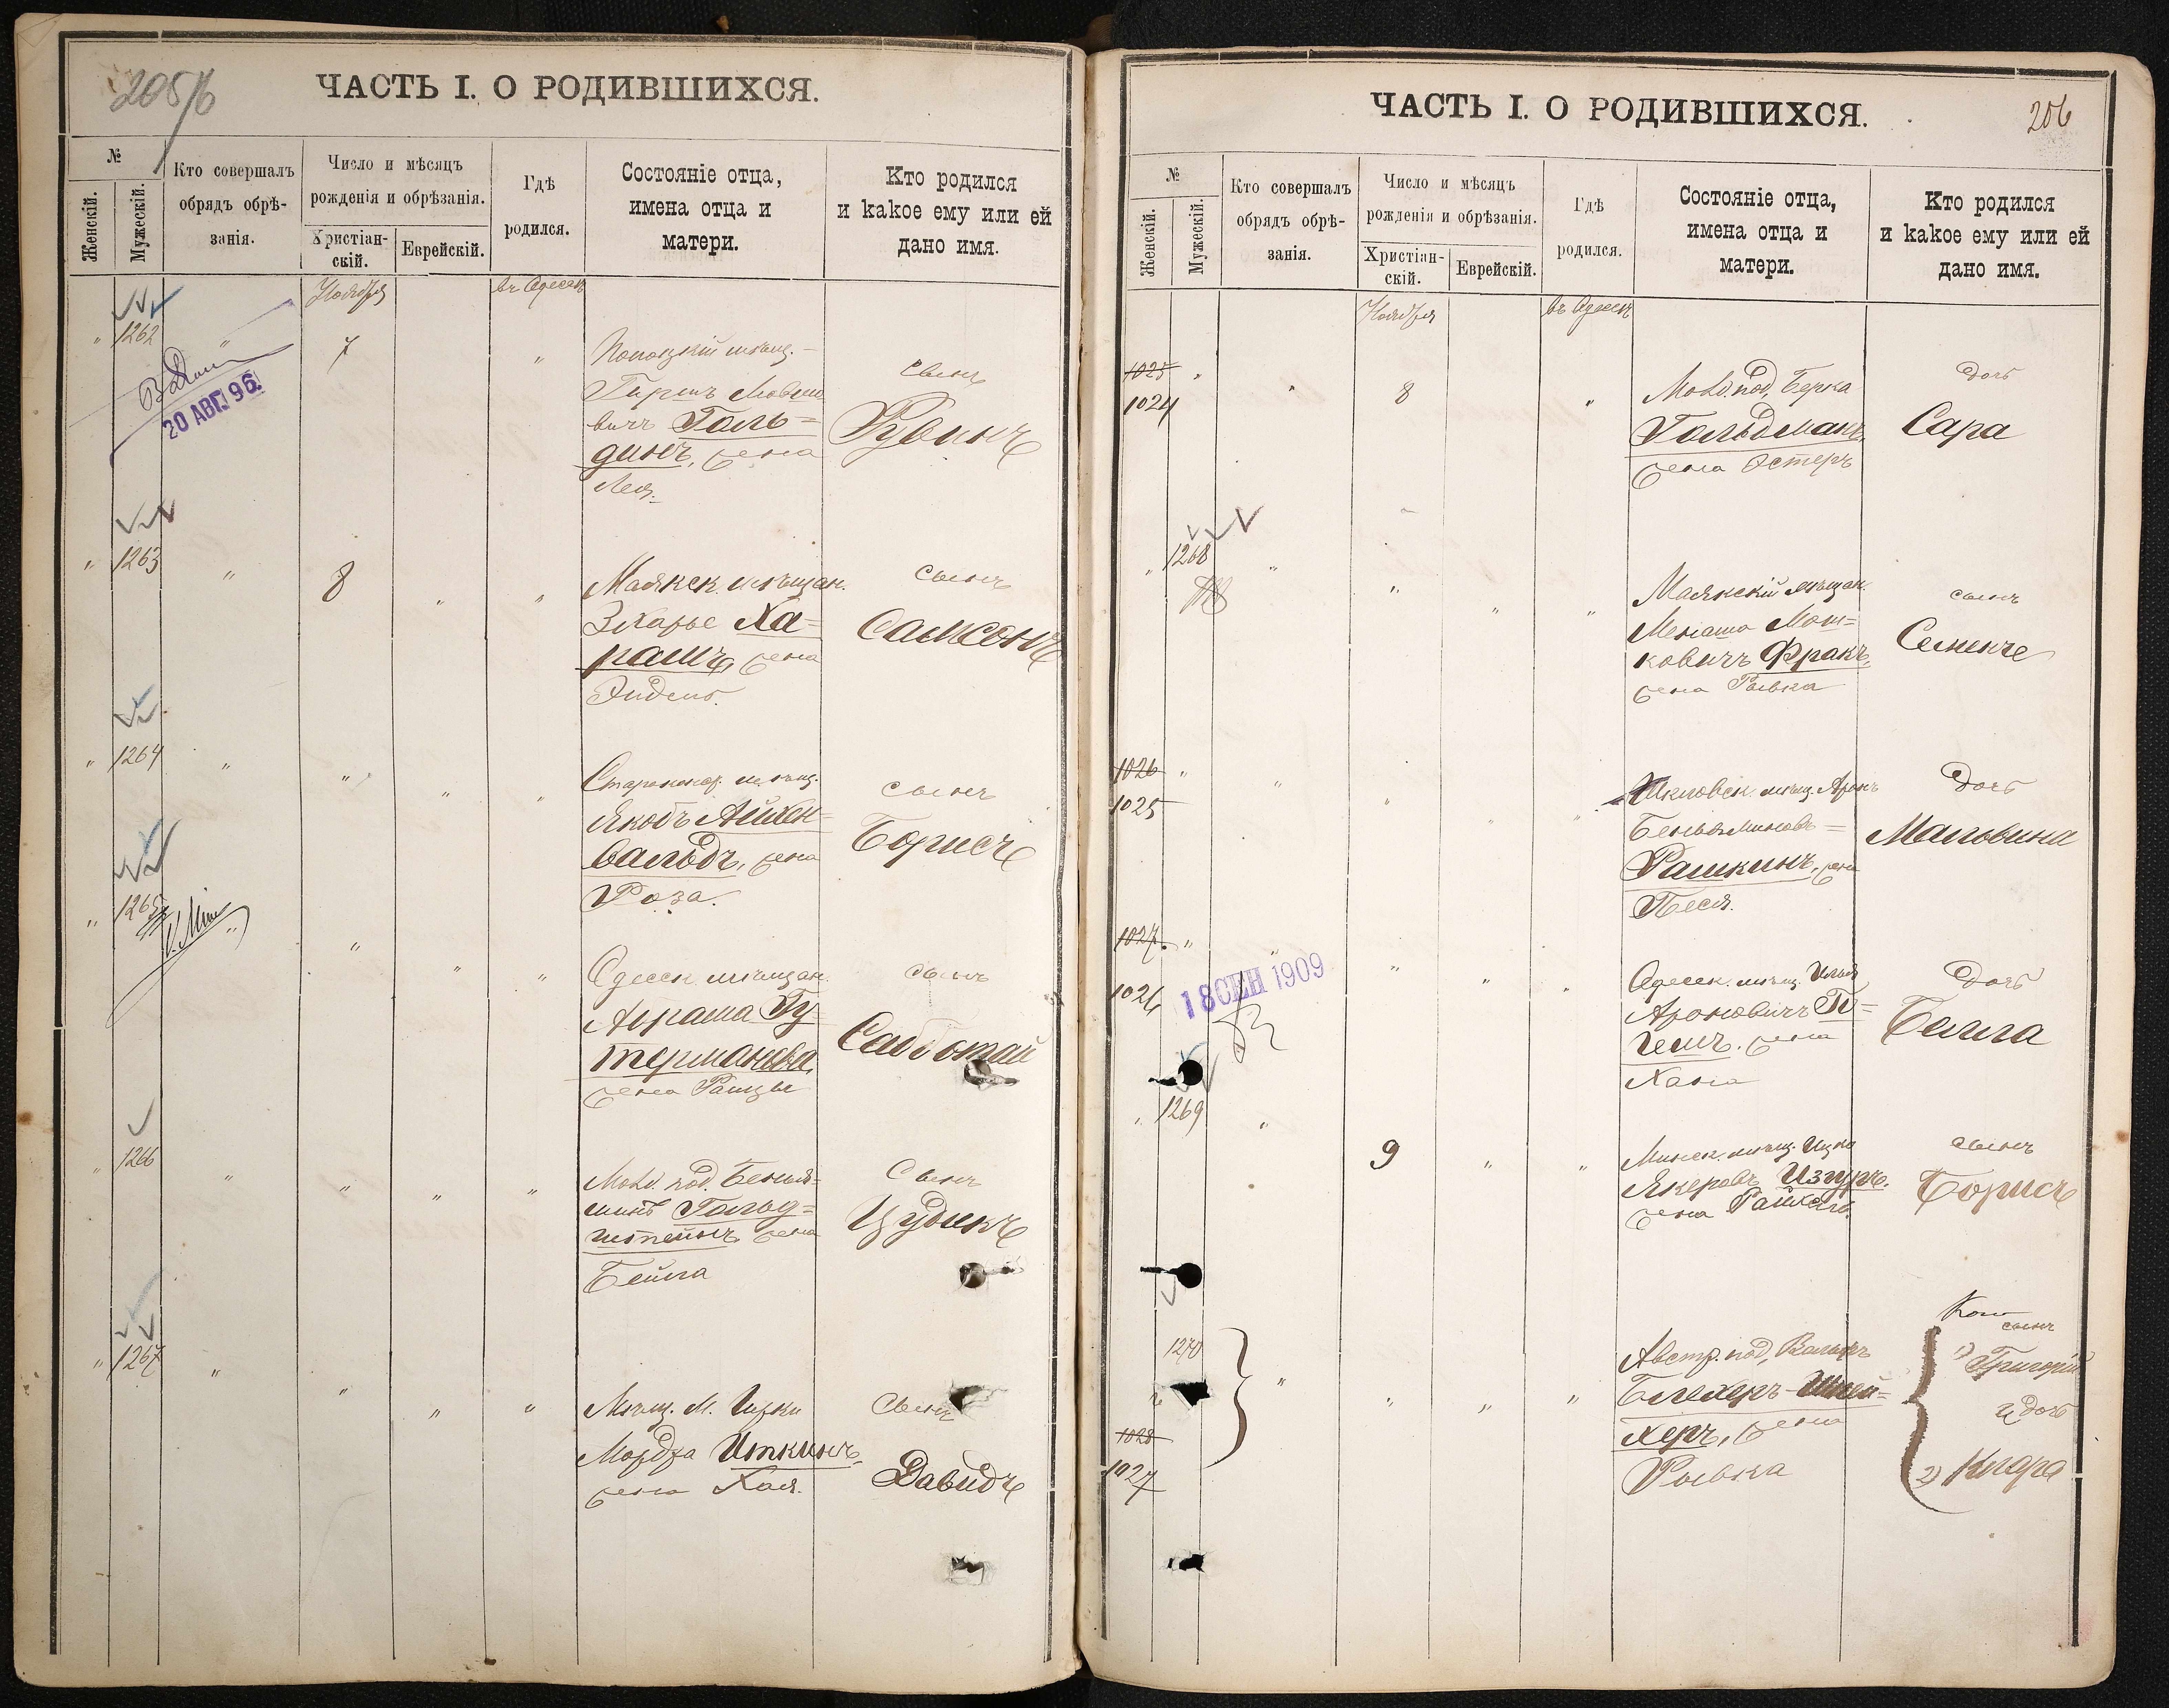 205/6
ЧАСТЬ I. О РОДИВШИХСЯ.
№
Женскій.
Мужескій.
Кто совершалъ
обрядъ обрѣ-
занія.
Число и мѣсяцъ
рожденія и обрѣзанія.
Христіан-
скій.
Еврейскій.
Гдѣ
родился.
Состояніе отца,
имена отца и
матери.
Кто родился
и какое ему или ей
дано имя.
Ноября
въ Одессѣ
" 1262 " 7 "
мѣщ.
Гершъ
вичъ Голь=
динъ, жена
Лея.
сынъ
Рувинъ
20 АВГ. 96.
" 1263 " 8 " "
Маякск. мѣщан.
Ха=
рашъ, жена
сынъ
Самсонъ
" 1264 " " " "
мѣщ.
Якобъ Айхен=
вальдъ, жена
Роза.
сынъ
Борисъ
" 1265 " " " "
Одесск. мѣщан.
Абрама Гу
терманъ,
жена
сынъ
Саботай
" 1266 " " " "
Молд. под. Беньи=
Гольд=
штейнъ, жена
Бейла
Сынъ
Цудикъ
" 1267 " " " "
Мѣщ. М.
Мордха Иткинъ,
жена Хая.
Сынъ
Давидъ
ЧАСТЬ I. О РОДИВШИХСЯ.
206
№
Женскій.
Мужескій.
Кто совершалъ
обрядъ обрѣ-
занія.
Число и мѣсяцъ
рожденія и обрѣзанія.
Христіан-
скій.
Еврейскій.
Гдѣ
родился.
Состояніе отца,
имена отца и
матери.
Кто родился
и какое ему или ей
дано имя.
Ноября
въ Одессѣ
1025 " " 8 "
1024
Молд. под, Берка
Гольдманъ,
жена Эстеръ
Дочь
Сара
" 1268 " " " "
Маякскій мѣщан.
Менаша Мош=
ковичъ Фракъ,
жена Рывка
сынъ
Семенъ
1026 " " " " "
1025
Шкловск. мѣщ. Аронъ
Беньяминовъ=
Рашкинъ, жена
Песя.
Дочь
Мальвина
1027 " " " " "
1026
18 СЕН 1909
Одесск. мѣщ.
Ароновичъ
жена
Хана
Дочь
Бейла
" 1269 " 9 " "
Минск. мѣщ. Ицка
Изгуръ.
жена
сынъ
Борисъ
1270
" " " " "
1028
1027
Австр. под,
Блехеръ-Шлей=
херъ, жена
Рывка
сынъ
1) Григорій
и дочь
2) Клара